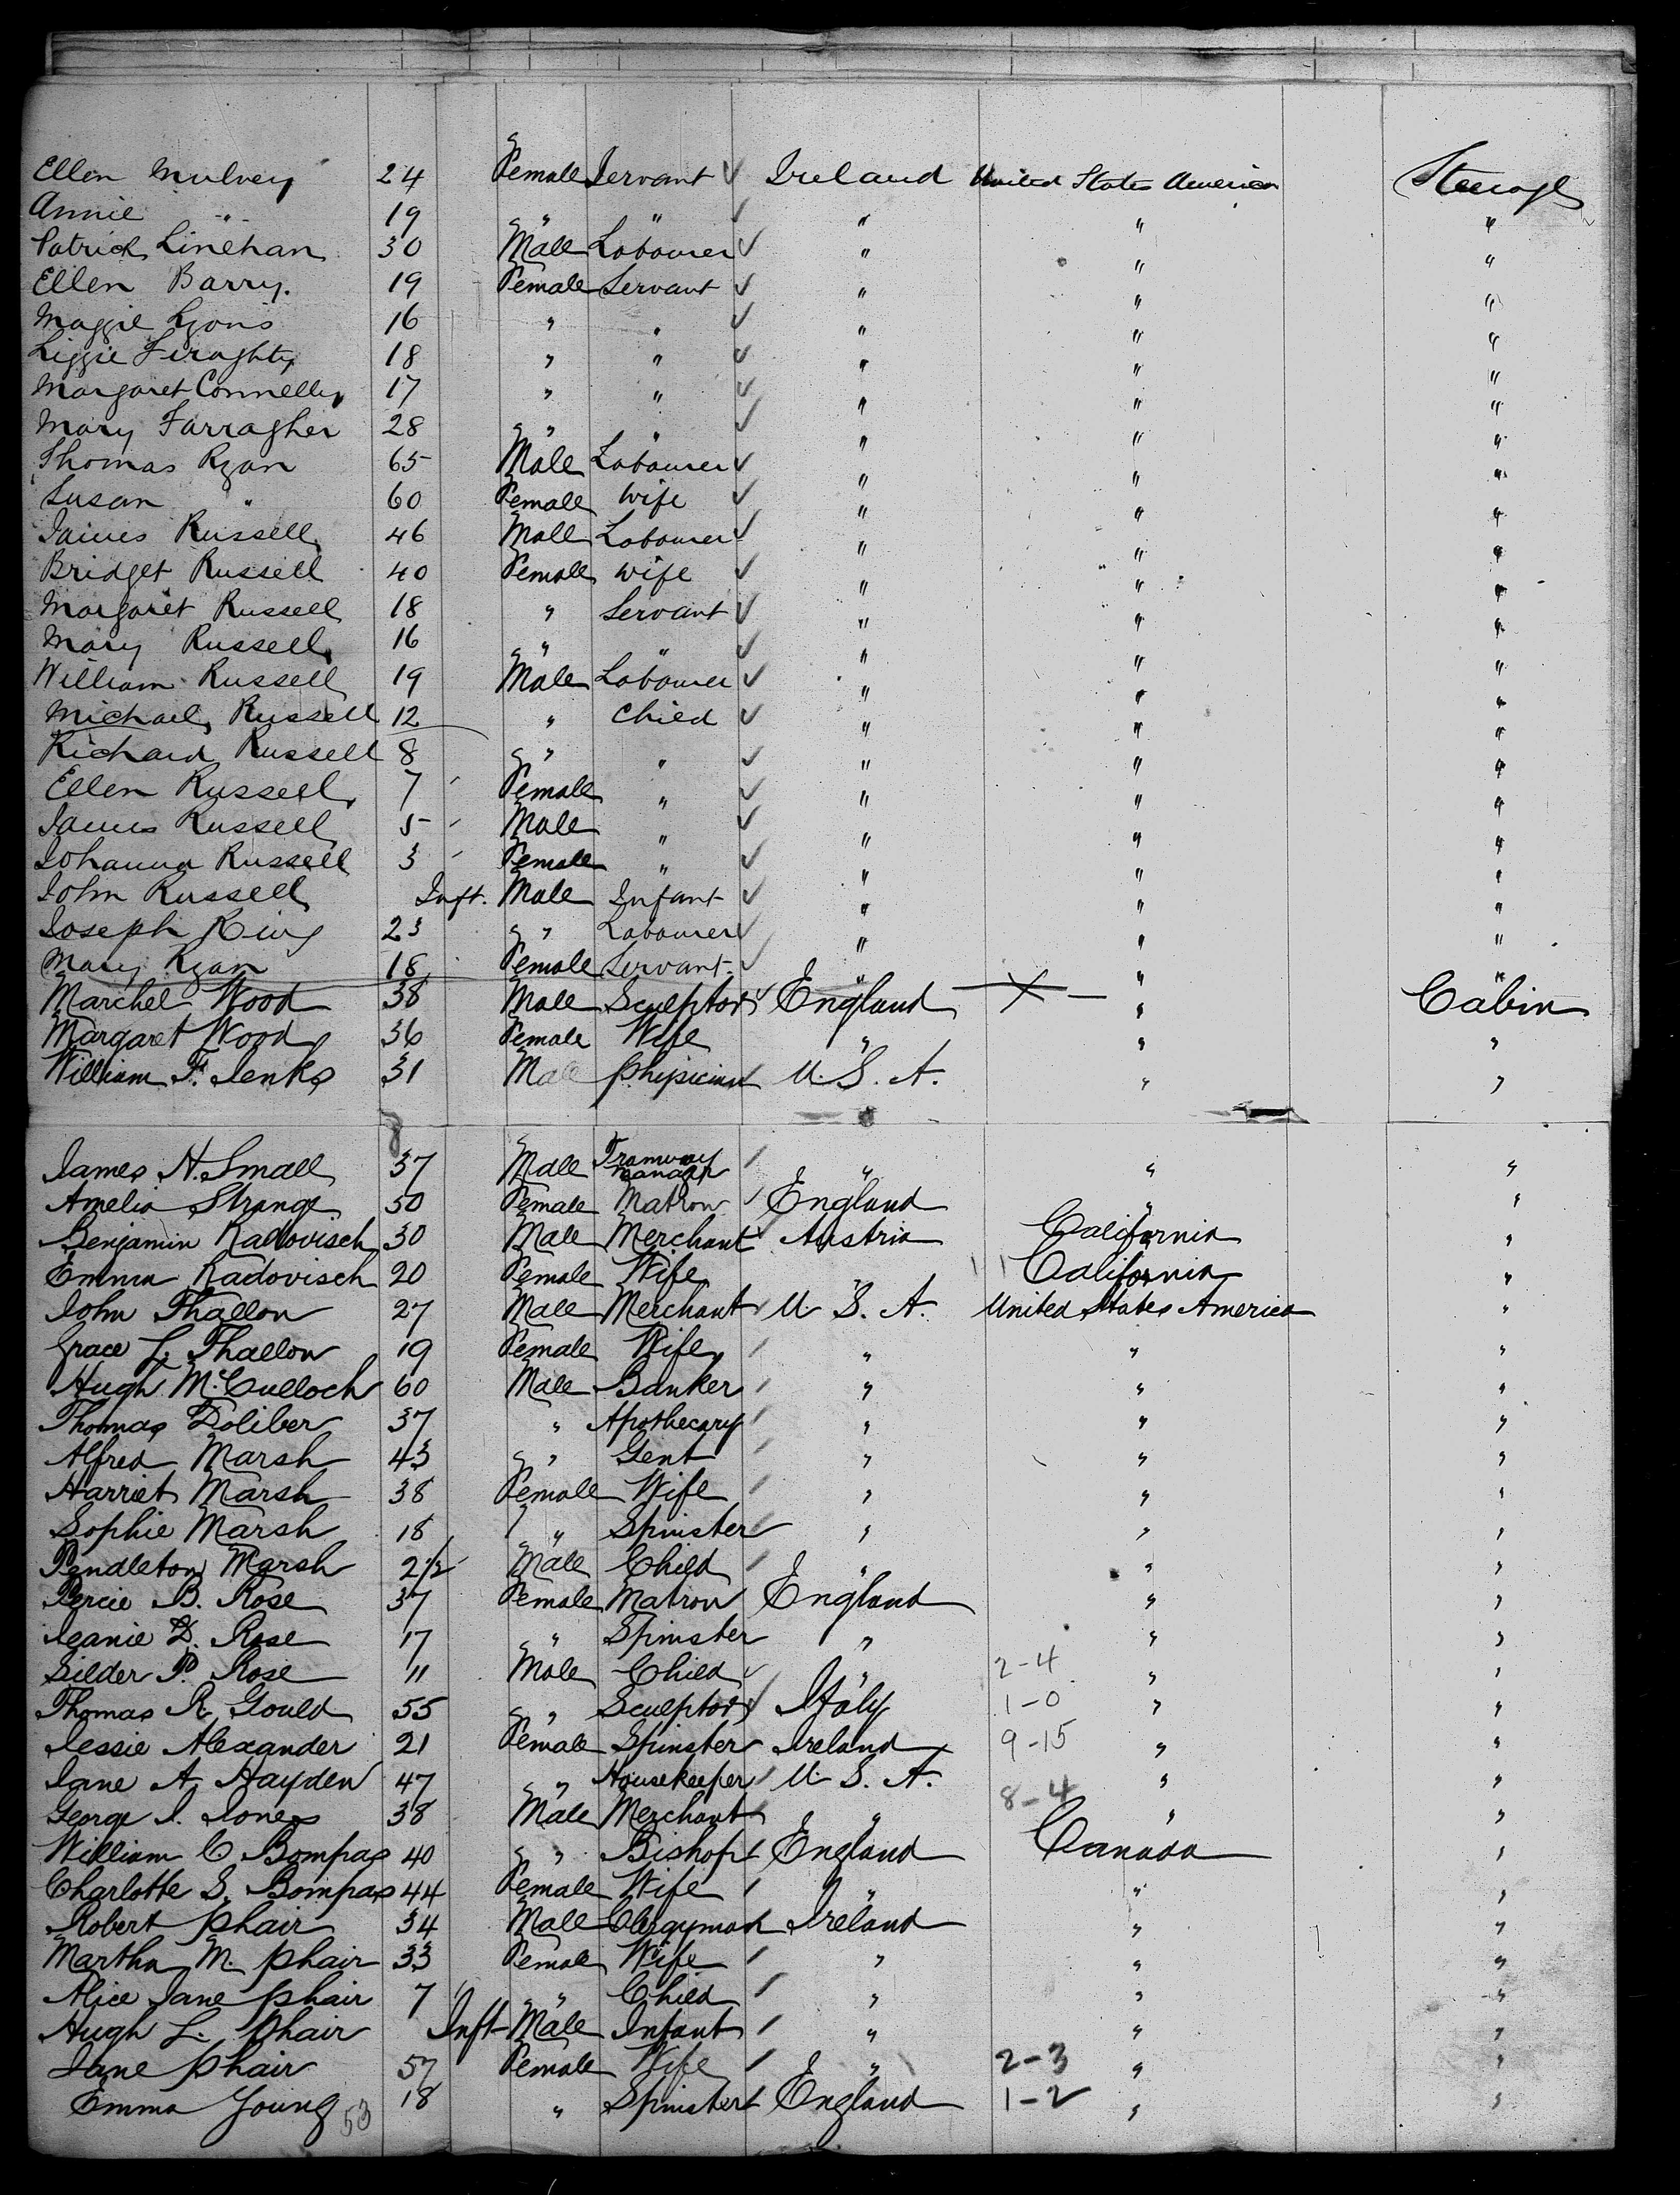 Ellen Mulvey 24 Female Servant ✓ Ireland United States America Steerage
Annie " 19 " " ✓ " " "
Patrick Linehan 30 Male Labourer ✓ " " "
Ellen Barry. 19 Female Servant ✓ " " "
Maggie Lyons 16 " " ✓ " " "
Lizzie Firaghty 18 " " ✓ " " "
Margaret Connelly 17 " " ✓ " " "
Mary Farragher 28 " " ✓ " " "
Thomas Ryan 65 Male Labourer ✓ " " "
Susan " 60 Female Wife ✓ " " "
James Russell 46 Male Labourer ✓ " " "
Bridget Russell 40 Female Wife ✓ " " "
Margaret Russell 18 " Servant ✓ " " "
Mary Russell 16 " " ✓ " " "
William Russell 19 Male Labourer ✓ " " "
Michael Russell 12 " Child ✓ " " "
Richard Russell 8 " " ✓ " " "
Ellen Russell 7 Female " ✓ " " "
James Russell 5 Male " ✓ " " "
Johanna Russell 3 Female " ✓ " " "
John Russell Inft. Male Infant ✓ " " "
Joseph King 23 " Labourer ✓ " " "
Mary Ryan 18 Female Servant ✓ " " "
Marchel Wood 38 Male Sculptor ✓ England " Cabin
Margaret Wood 36 Female Wife " " "
William F. Jenks 31 Male Physician U. S. A. " "
James H. Small 37 Male Tramway Manager " " "
Amelia Strange 50 Female Matron England " "
Benjamin Radovisch 30 Male Merchant Austria California "
Emma Radovisch 20 Female Wife " California "
John Thallon 27 Male Merchant U. S. A. United States America "
Grace L. Thallon 19 Female Wife " " "
Hugh McCulloch 60 Male Banker " " "
Thomas Doliber 37 " Apothecary " " "
Alfred Marsh 43 " Gent " " "
Harriet Marsh 38 Female Wife " " "
Sophie Marsh 18 " Spinster " " "
Pendleton Marsh 2½ Male Child " " "
Percie B. Rose 37 Female Matron England " "
Jeanie D. Rose 17 " Spinster " " "
Silder P. Rose 11 Male Child " 2-4 " "
Thomas R. Gould 55 " Sculptor Italy 1-0 " "
Jessie Alexander 21 Female Spinster Ireland 9-15 " "
Jane A. Hayden 47 " Housekeeper U. S. A. " "
George I. Jones 38 Male Merchant " 8-4 " "
William C Bompas 40 " Bishop England Canada "
Charlotte S. Bompas 44 Female Wife " " "
Robert Phair 34 Male Clergyman Ireland " "
Martha M. Phair 33 Female Wife " " "
Alice Jane Phair 7 " Child " " "
Hugh L. Phair Inft Male Infant " " "
Jane Phair 57 Female Wife " 2-3 " "
Emma Young 18 " Spinster England 1-2 " "
53